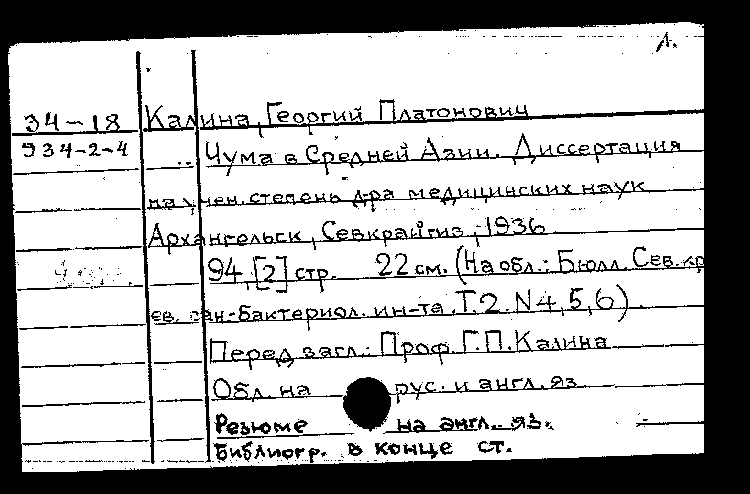 Л.
34-18 Калина, Георгий Платонович
934-2-4 .. Чума в Средней Азии. Диссертация
на учен. степень д-ра медицинских наук
Архангельск, Севкрайгиз, 1936
94, [2] стр. 22 см. (На обл.: Бюлл. Сев.кр
ев. сан-бактериол. ин-та. Т.2. N 4, 5, 6).
Перед загл.: Проф. Г.П. Калина
Обл. на рус. и англ. яз
Резюме на англ. яз.
Библиогр. в конце ст.